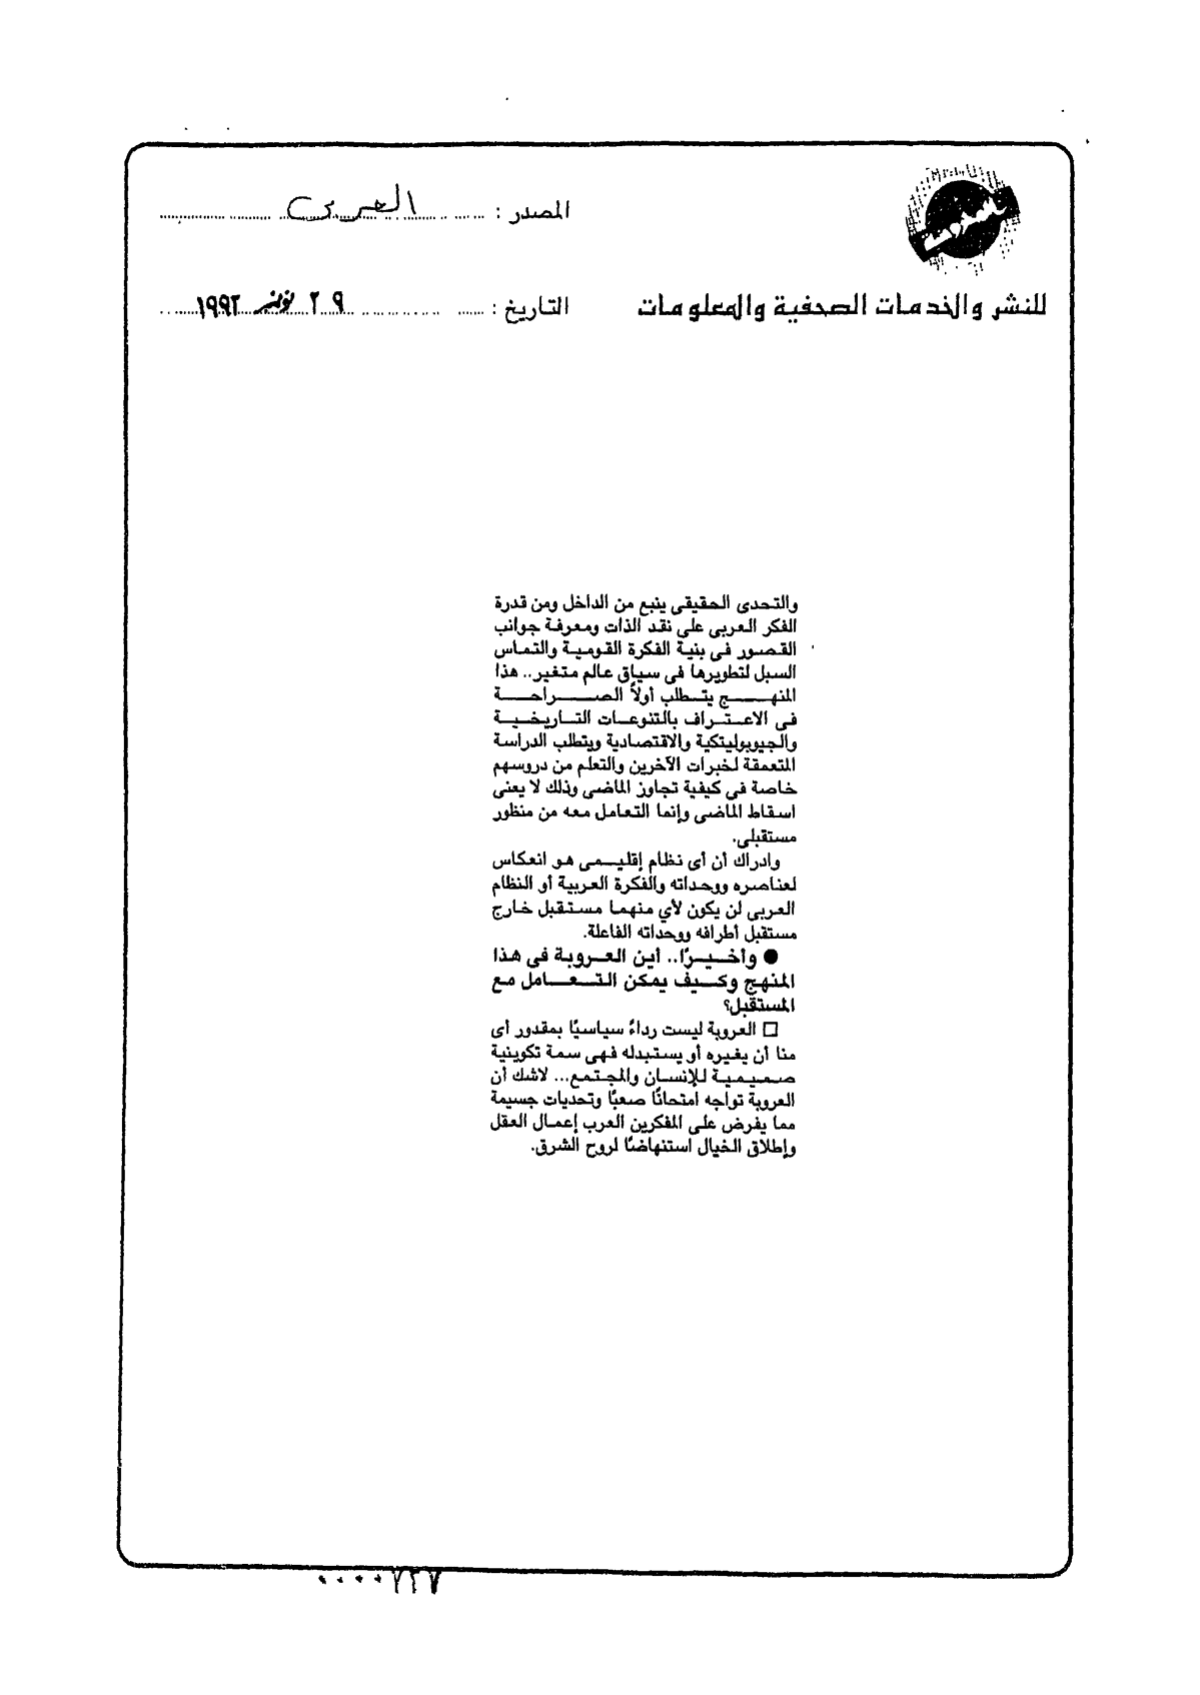 المصدر : العربى
للنشر والخدمات الصحفية والمعلومات
التاريخ : ٢٩ نوفمبر ١٩٩٢
والتحدى الحقيقى ينبع من الداخل ومن قدرة
الفكر العربى على نقد الذات ومعرفة جوانب
القصور فى بنية الفكرة القومية والتماس
السبل لتطويرها فى سياق عالم متغير.. هذا
المنهج يتطلب أولاً الصراحة
فى الاعتراف بالتنوعات التاريخية
والجيوبوليتكية والاقتصادية ويتطلب الدراسة
المتعمقة لخبرات الآخرين والتعلم من دروسهم
خاصة فى كيفية تجاوز الماضى وذلك لا يعنى
اسقاط الماضى وإنما التعامل معه من منظور
مستقبلى.
وادراك أن أى نظام إقليمى هو انعكاس
لعناصره ووحداته والفكرة العربية أو النظام
العربى لن يكون لأي منهما مستقبل خارج
مستقبل أطرافه ووحداته الفاعلة.
● وأخيرًا.. أين العروبة فى هذا
المنهج وكيف يمكن التعامل مع
المستقبل؟
□ العروبة ليست رداءً سياسيًا بمقدور أى
منا أن يغيره أو يستبدله فهى سمة تكوينية
صميمية للإنسان والمجتمع... لاشك أن
العروبة تواجه امتحانًا صعبًا وتحديات جسيمة
مما يفرض على المفكرين العرب إعمال العقل
وإطلاق الخيال استنهاضًا لروح الشرق.